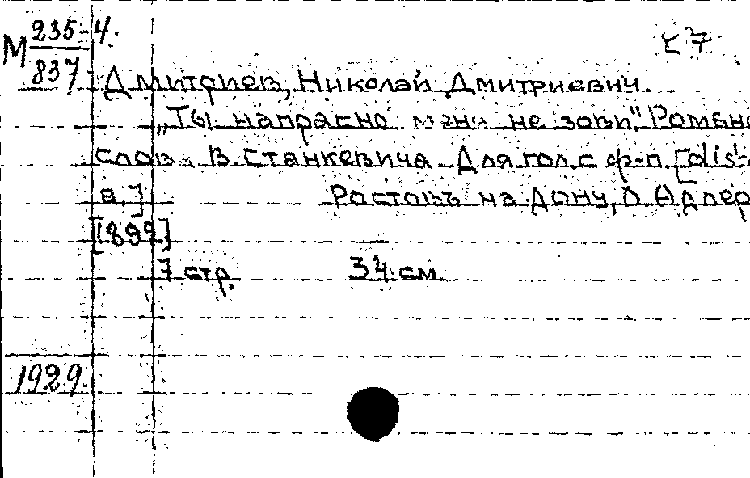 М 235-4.
837
Е 7
Дмитриев, Николай Дмитриевич.
„Ты напрасно меня не зови". Романс
слова В. Станкевича. Для гол. с ф-п. [dis¹-
a.] Ростовъ на Дону, Л. Адлер
[1899]
7 стр. 34 см
1929